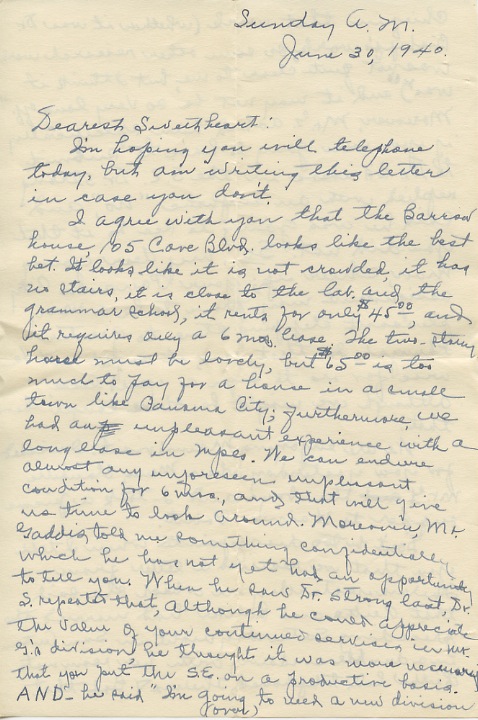 Sunday A.M.
June 30, 1940.
Dearest Sweetheart:
I'm hoping you will telephone
today, but am writing this letter
in case you don't.
I agree with you that the Barrow
house, Cove Blvd. looks like the best
bet. It looks like it is not crowded, it has
no stairs, it is close to the lab. and the
grammar school, it rents for only $45.00, and
it requires only a 6 mos. lease. The two-story
house must be lovely, but $65.00 is too
much to pay for a house in a small
town like Panama City; furthermore, we
had an unpleasant experience with a
long lease in Mpls. We can endure
almost any unforeseen unpleasant
condition for 6 mos., and that will give
us time to look around. Moreover, Mr.
Gaddis told me something confidentially
which he has not yet had an opportunity
to tell you. When he saw Dr. Strong last, Dr.
S. repeated that, although he could appreciate
the value of your continued services in Mr.
G's division, he thought it was more necessary
that you put the S.E. on a productive basis.
AND - he said "I'm going to need a new division
(over)